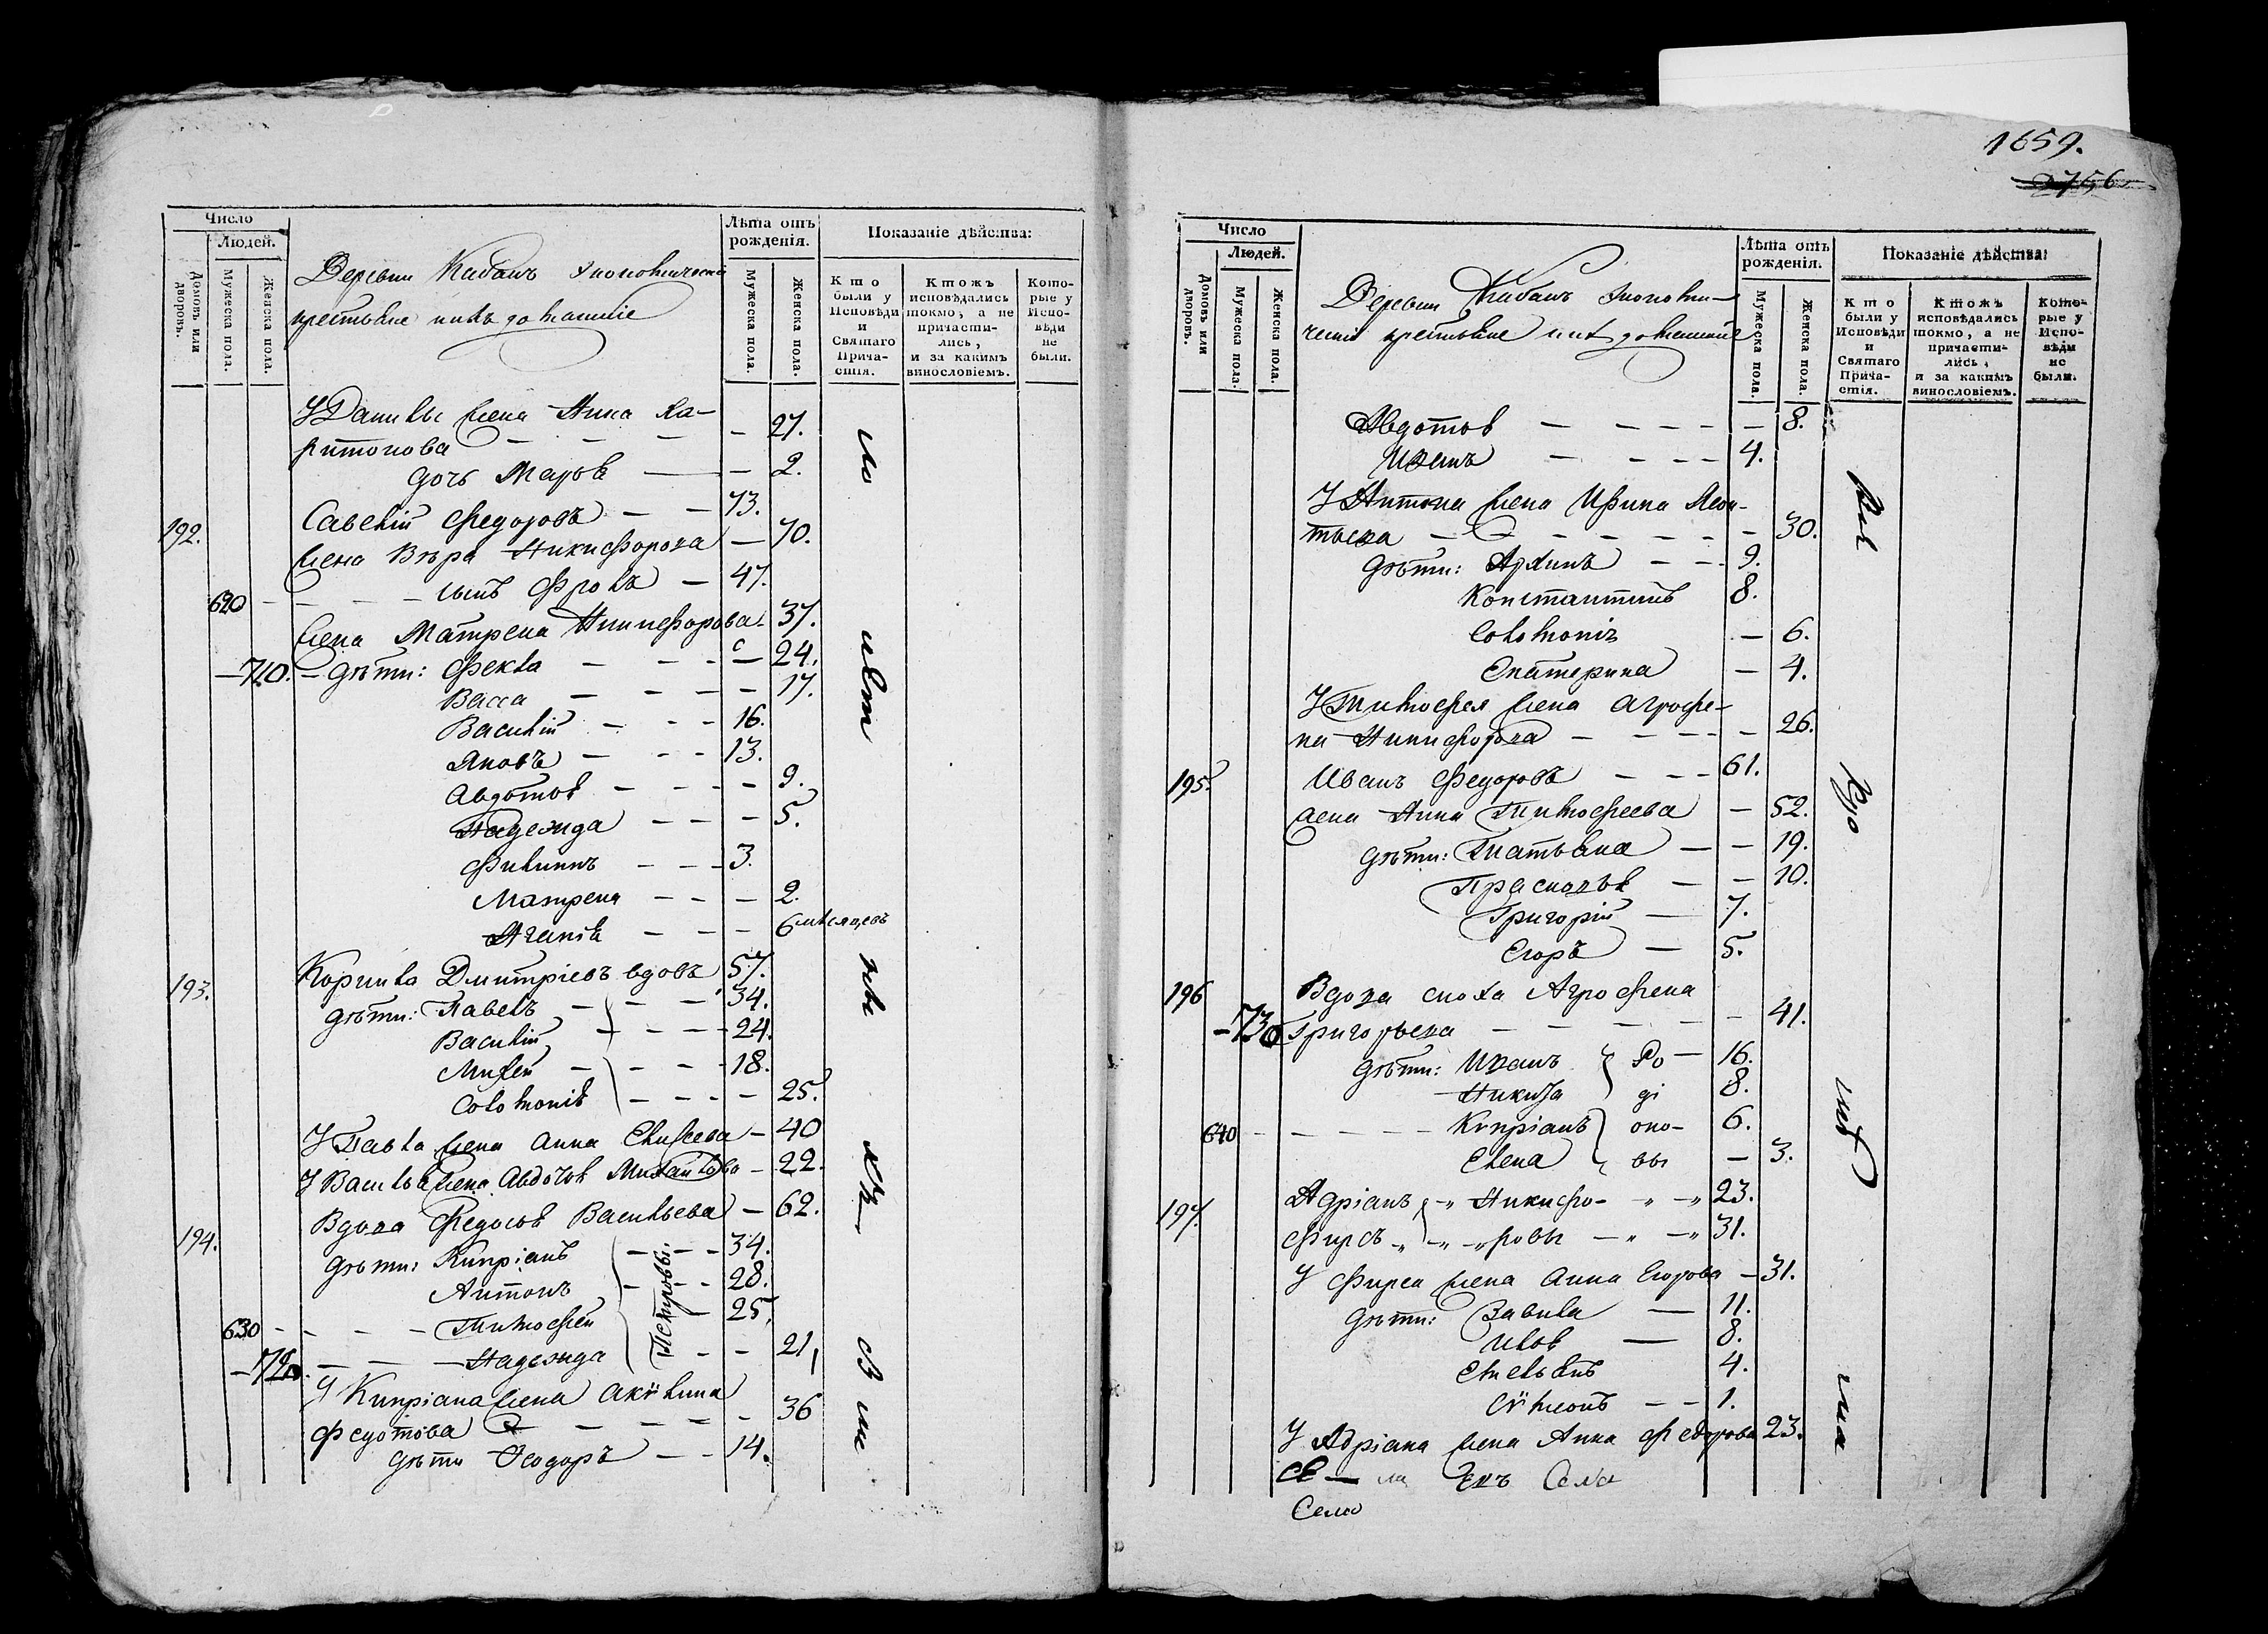 Число
Людей.
Домовъ или дворовъ.
Мужеска пола.
Женска пола.
Деревни Кабанъ Экономическiя
крестьяне и ихъ домашнiе
Лѣта отъ рожденiя.
Мужеска пола.
Женска пола.
Показанiе дѣйства:
Кто были у Исповѣди и Святаго Прича-стiя.
Ктожъ исповѣдались токмо, а не причасти-лись, и за какимъ винословiемъ.
Кото-рые у Испо-вѣди не были.
У Данилы жена Анна Ха-
ритонова — — — — 27.
дочь Марья — — 2.
192. Савелiй Федоровъ — — 73.
жена Вѣра Никифорова — 70.
620 — — — — сынъ Фролъ — 47.
жена Матрена Никифорова — 37.
— 710. — дѣти: Фекла — — — 24.
Васса — — — — 17.
Василiй — — — 16.
Яковъ — — — 13.
Авдотья — — — — 9.
Надежда — — — 5.
Филиппъ — — — 3.
Матрена — — — 2.
Агапiя — — — 6 мѣсяцевъ
193. Корнила Дмитрiевъ вдовъ 57.
дѣти: Павелъ — — — 34.
Василiй — — — 24.
Михей — — — 18.
Соломонiя — — — — 25.
У Павла жена Анна Елисеева — 40
У Василья жена Авдотья Михайлова — 22.
194. Вдова Федосья Васильева — 62.
дѣти: Кипрiанъ — — — 34.
Антонъ — — — 28.
630 — — — — Тимофей — 25.
— 720. — — — Надежда — — 21,
Петровы.
У Кипрiана жена Акѵлина
Федотова — — — — 36
дѣти Ѳеодоръ — — 14.
1659.
2756
Число
Людей.
Домовъ или дворовъ.
Мужеска пола.
Женска пола.
Деревни Кабанъ Экономи-
ческiя крестьяне и ихъ домашнiе
Лѣта отъ рожденiя.
Мужеска пола.
Женска пола.
Показанiе дѣйства:
Кто были у Исповѣди и Святаго Прича-стiя.
Ктожъ исповѣдались токмо, а не причасти-лись, и за какимъ винословiемъ.
Кото-рые у Испо-вѣди не были.
Авдотья — — — — — 8.
Иванъ — — — — 4.
У Антона жена Ирина Леон-
тьева — — — — — — 30.
дѣти: Архипъ — — 9.
Константинъ 8.
Соломонiя — 6.
Екатерина — 4.
У Тимофея жена Агрофе-
на Никифорова — — — — 26.
195. Иванъ Федоровъ — — — 61.
жена Анна Тимофеева — 52.
дѣти: Татьяна — — 19.
Прасковья — — 10.
Григорiй — 7.
Егоръ — 5.
196 Вдова сноха Агрофена
— 730 Григорьева — — — — — 41.
дѣти: Иванъ Ро — 16.
Никита дi 8.
640 — — — — — Кипрiанъ оно- 6.
Елена вы — 3.
197. Адрiанъ — „ Никифо- „ — „ 23.
Фирсъ „ — „ — „ ровы — „ — „ 31.
У Фирса жена Анна Егорова — 31.
дѣти: Вавила — 11.
Илья — 8.
Емельянъ 4.
Сѵмеонъ — — 1.
У Адрiана жена Анна Федорова 23.
Село